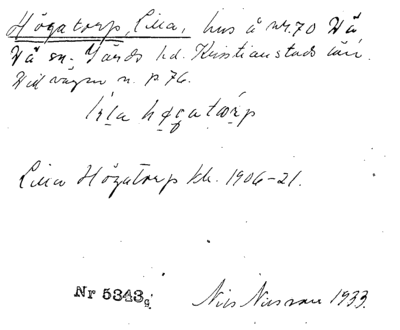 Högatorp, Lilla, hus å nr. 70 Vä
Vä sn. Gärds hd. Kristianstads län.
Vid vägen n. p 76.
lıla høgatωrp
Lilla Högatorp kb. 1906-21.
Nr 5343 Nils Nilsson 1933.